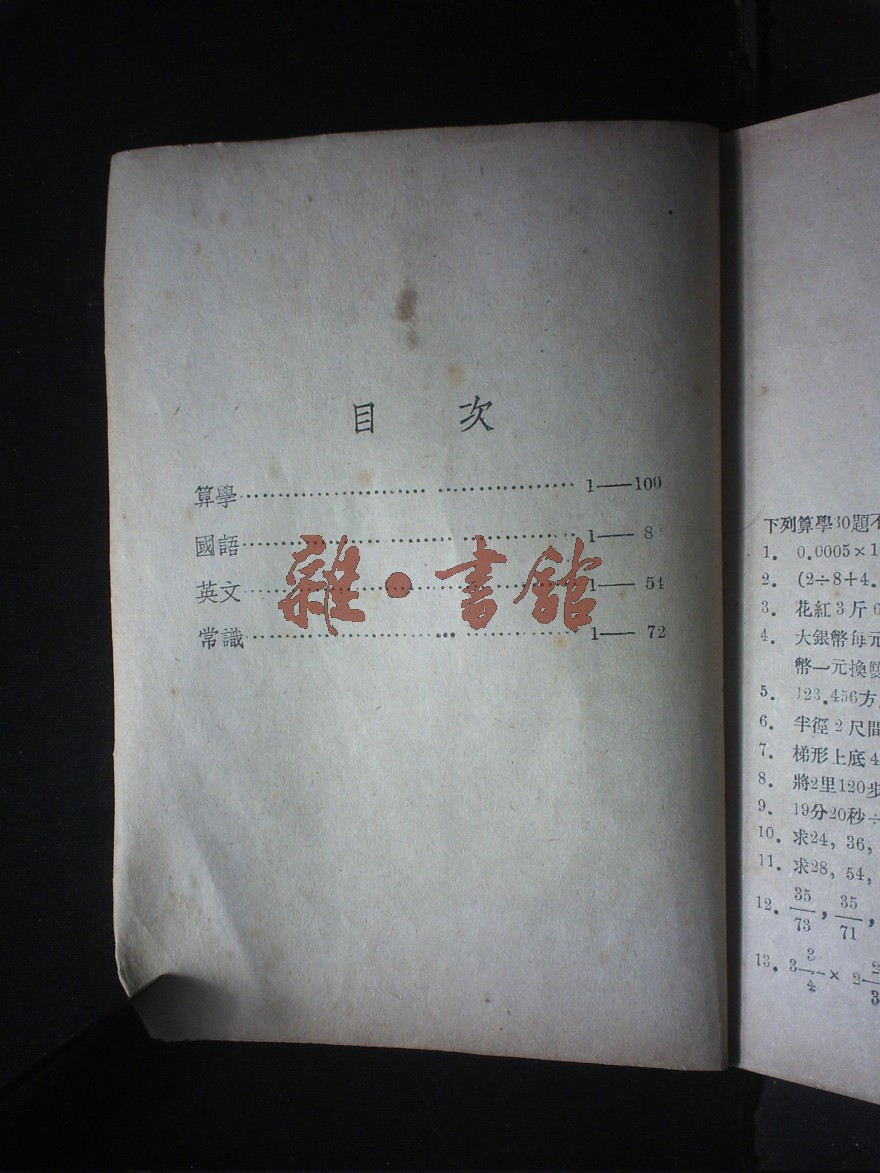 目 次
算學…………………… ………………1——100
國語…………………… ………………1—— 8
英文…………………… ………………1—— 54
常識…………………… ………………1—— 72
雜·書館
下列算學30題
1. 0.0005×1
2. (2÷8+4.
3. 花紅3斤6
4. 大銀幣每元
幣一元換
5. 123.456方
6. 半徑2尺
7. 梯形上底4
8. 將2里120步
9. 19分20秒÷
10. 求24, 36,
11. 求28, 54,
12. 35/73, 35/71,
13. 3 3/4 × 2